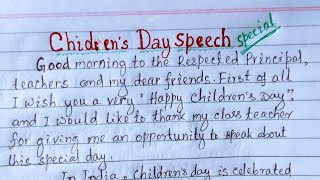 Chidren's Day speech special
Good morning to the Respected Principal,
teachers and my dear friends. First of all
I wish you a very "Happy Children's Day",
and I would like to thank my class teacher
for giving me an opportunity to speak about
this special day.
In India, Children's day is celebrated